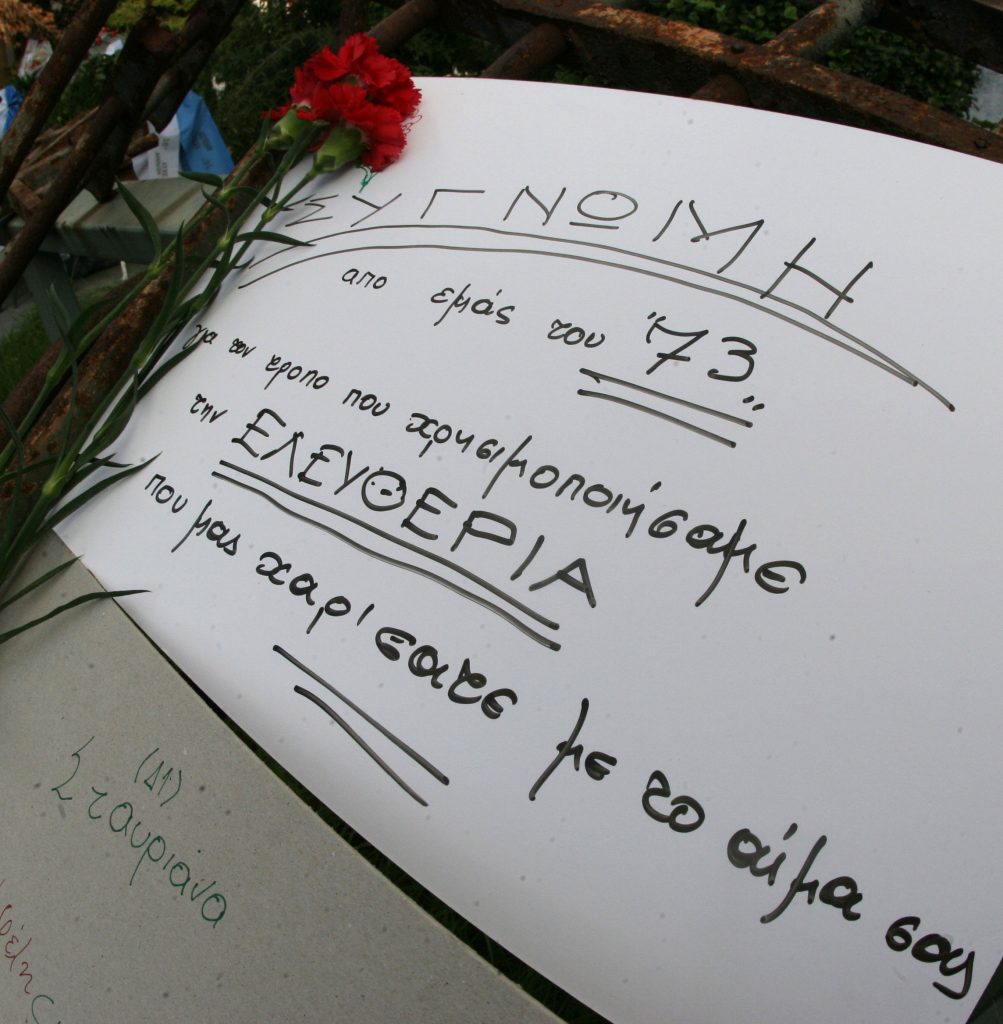 ΣΥΓΝΩΜΗ
απο εμάς του "73"
για τον τροπο που χρησιμοποιήσαμε
την ΕΛΕΥΘΕΡΙΑ
που μας χαρίσατε με το αίμα σας
(Δ1)
Σταυριάνα